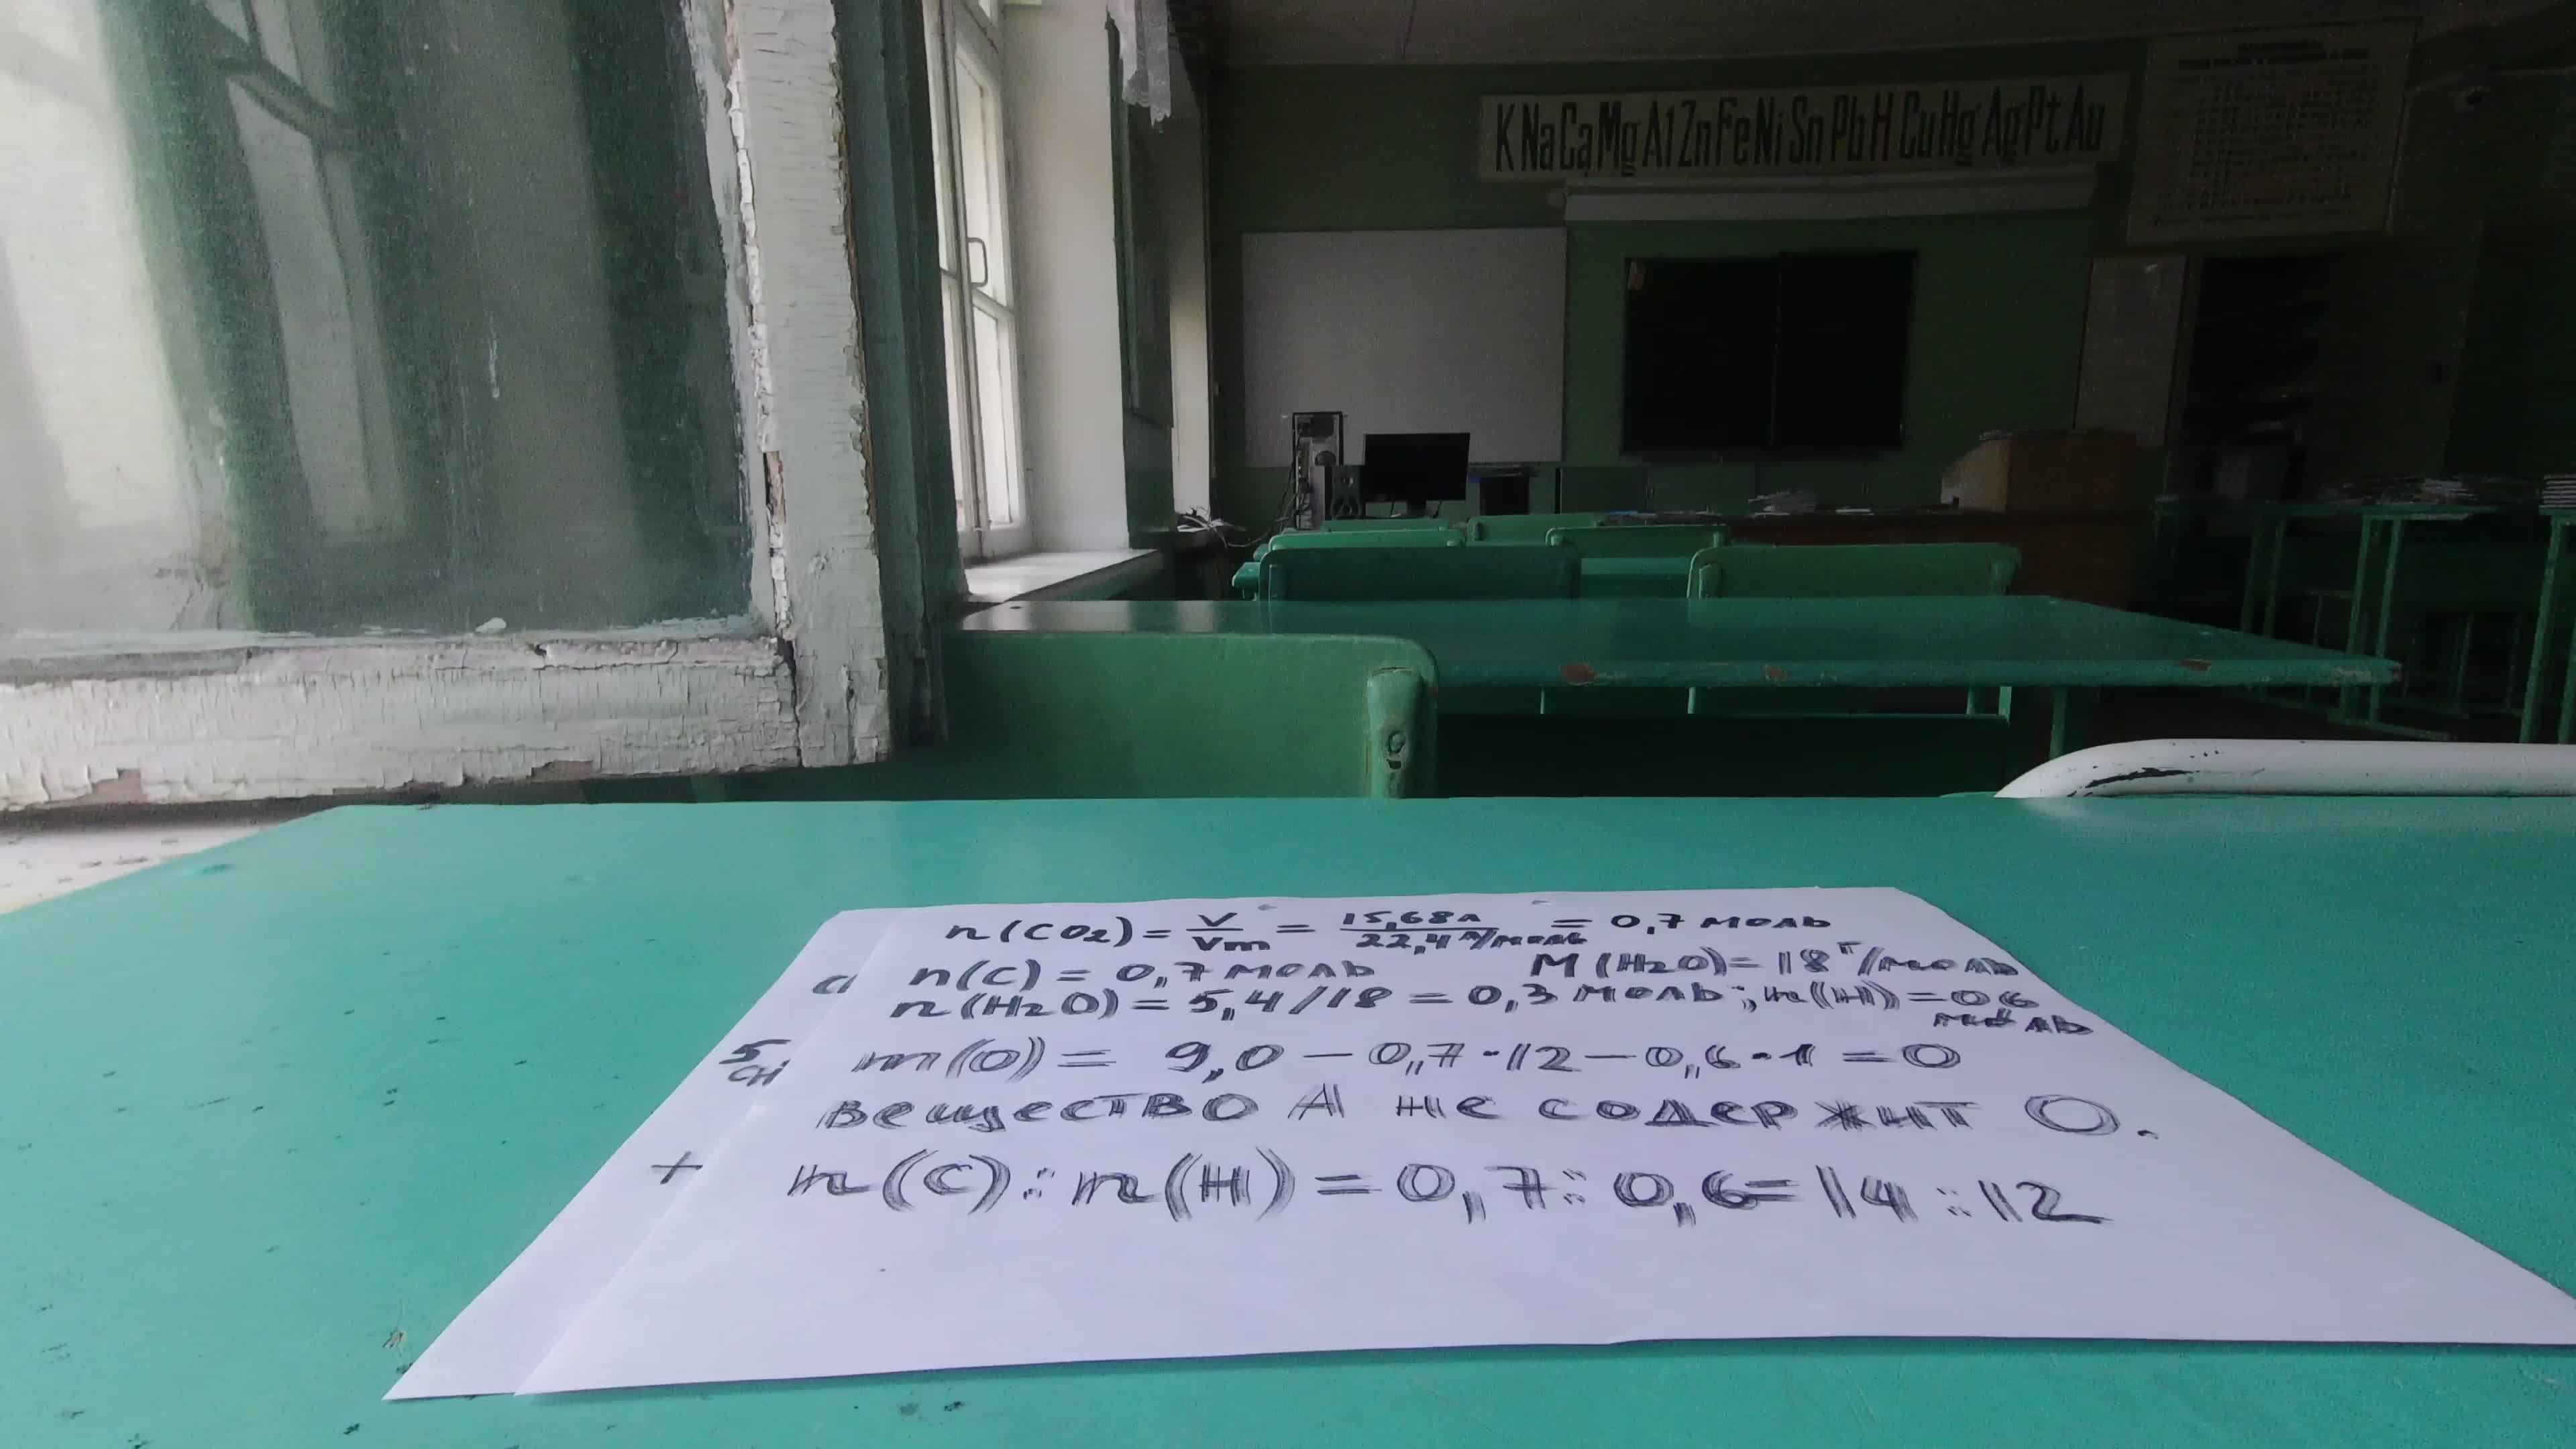 K Na Ca Mg Al Zn Fe Ni Sn Pb H Cu Hg Ag Pt Au
n(CO₂) = V/Vm = 15,68л/22,4 л/моль = 0,7 моль
n(C) = 0,7 моль M(H₂O) = 18 г/моль
n(H₂O) = 5,4/18 = 0,3 моль; n(H) = 0,6 моль
m(O) = 9,0 - 0,7·12 - 0,6·1 = 0
вещество A не содержит O.
n(C):n(H) = 0,7:0,6 = 14:12
5,
CH
+